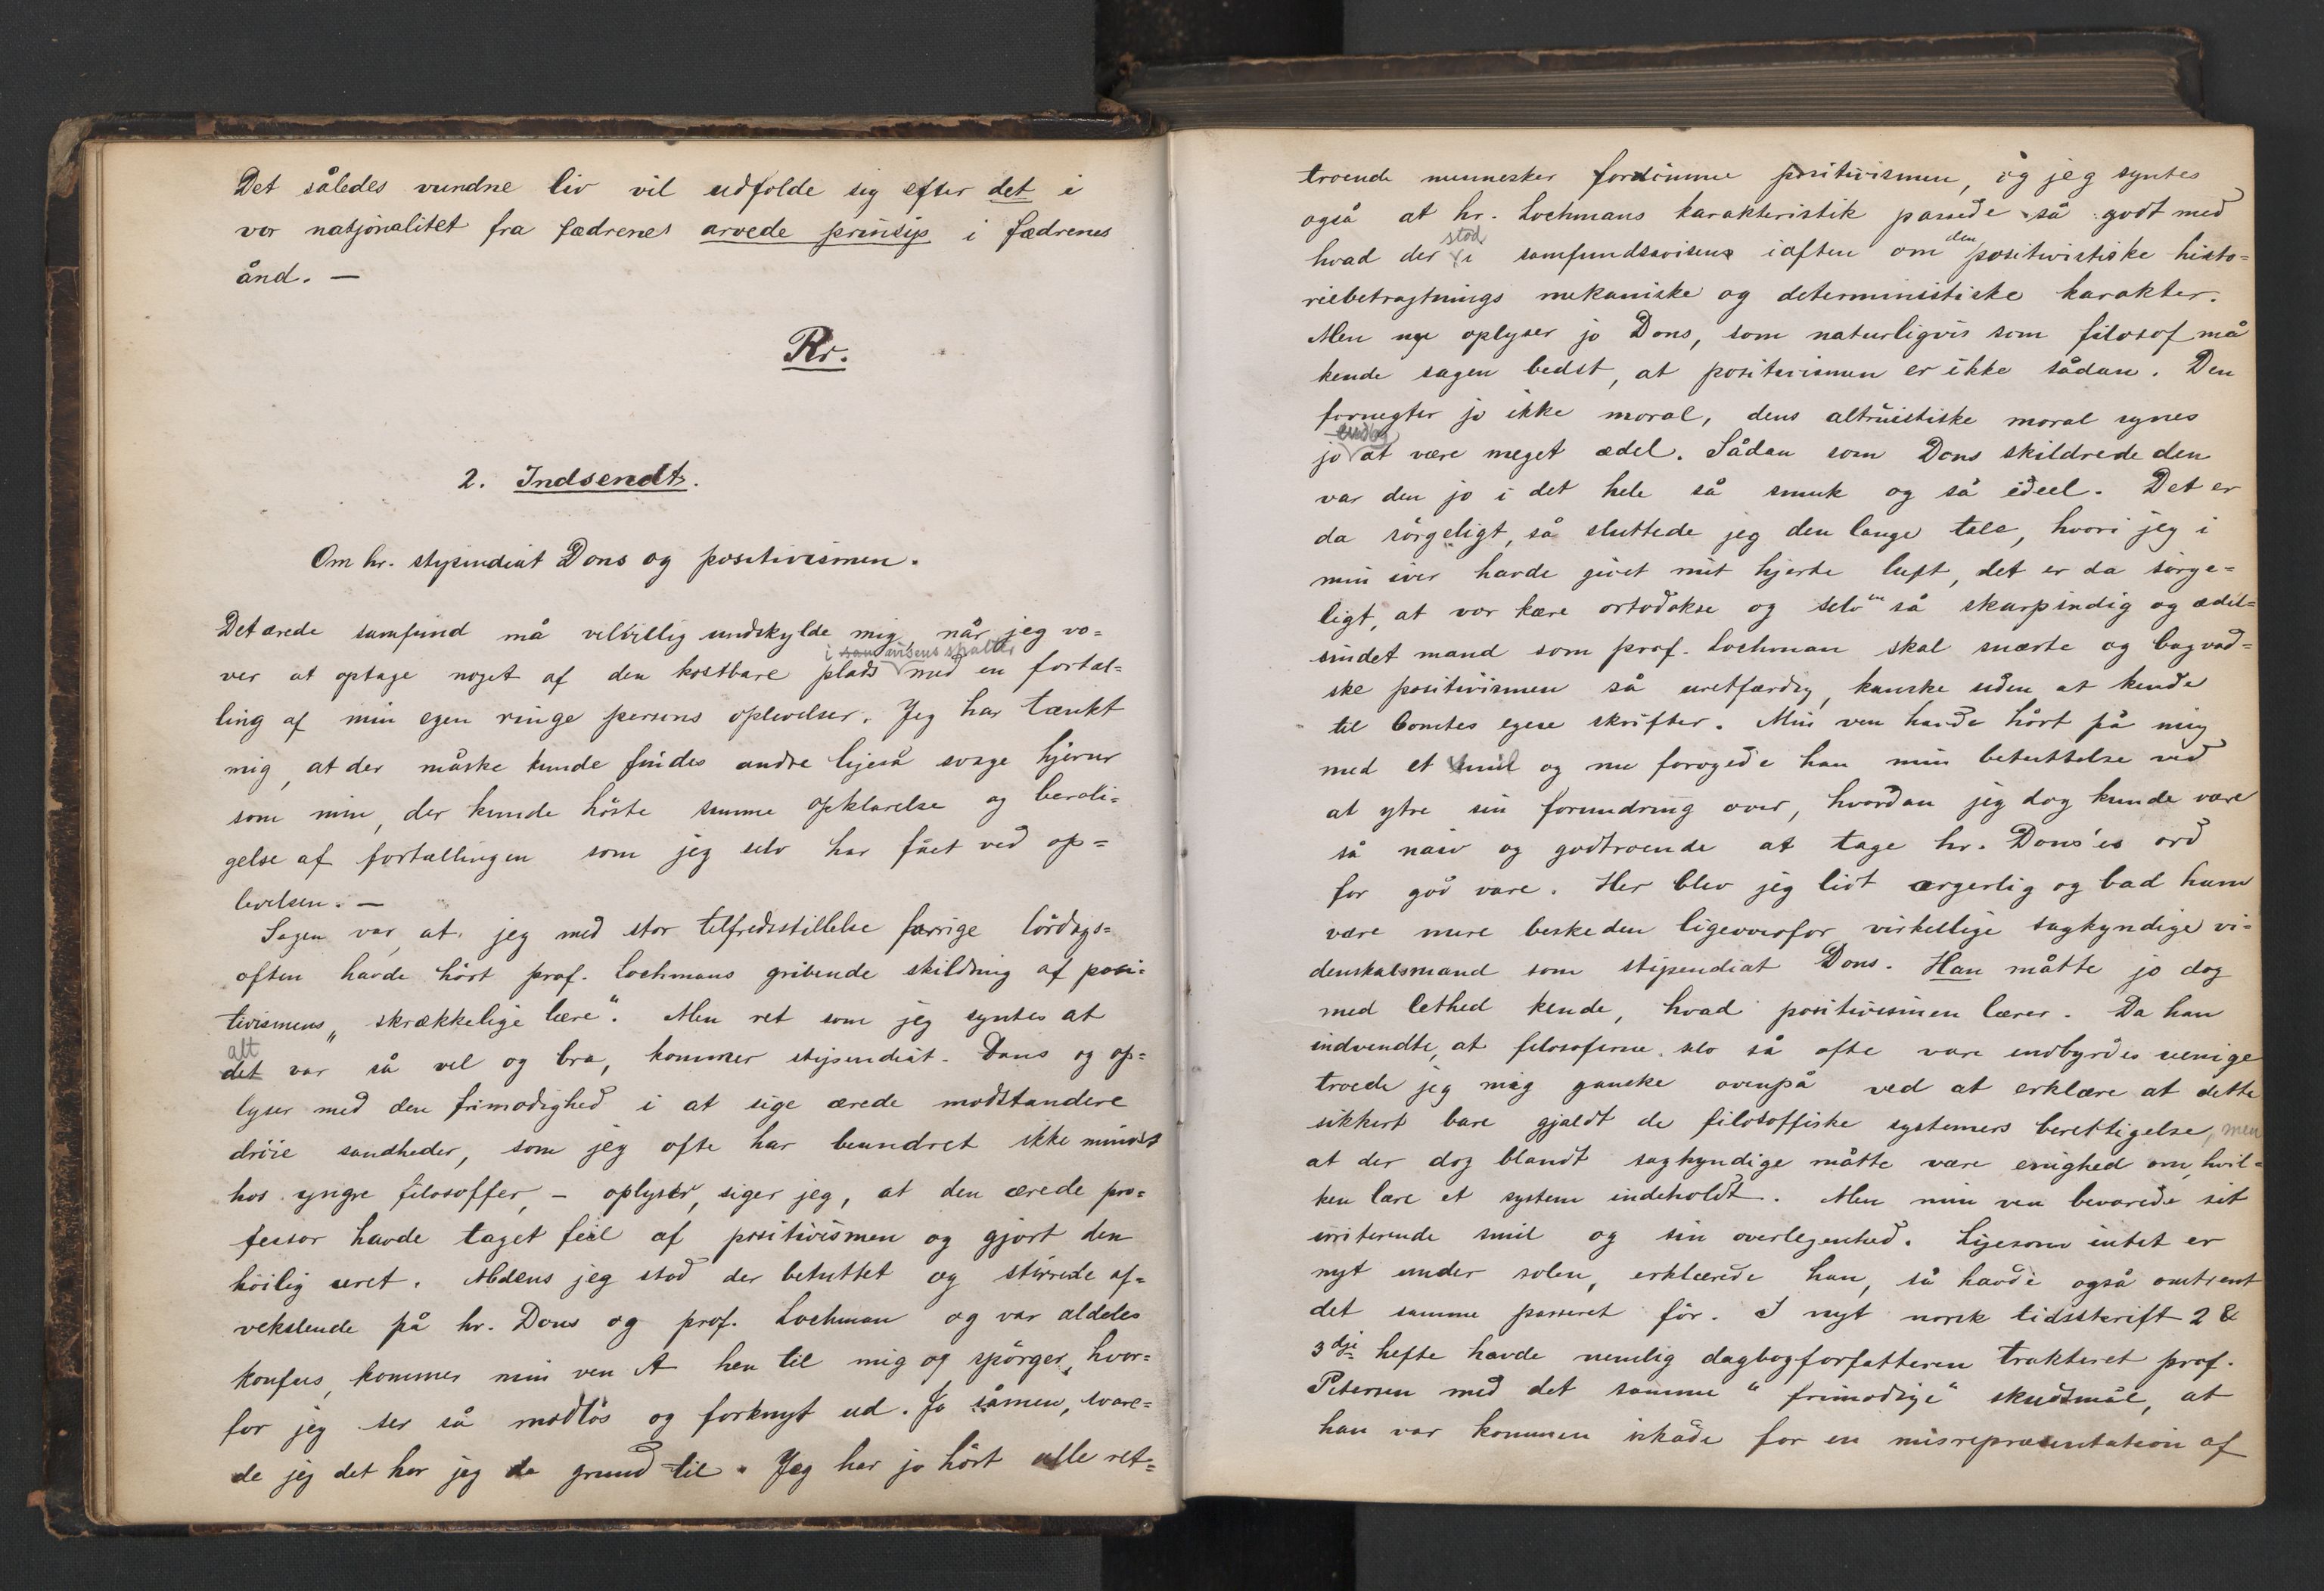 Det således vundne liv vil udfolde sig efter det i
vor natjonalitet fra fædrenes arvede prinsip i fædrenes
ånd. —
Rr.
2. Indsendt.
Om hr. stipendiat Dons og positivismen.
Det ærede samfund må velvillig undskylde mig, når jeg vo=
i avisens spalter
ver at optage noget af den kostbare plads med en fortæl=
ling af min egen ringe persons oplevelser. Jeg har tænkt
mig, at der måske kunde findes andre ligeså svage hjerner
som min, der kunde höste samme opklarelse og beroli=
gelse af fortællingen som jeg selv har fået ved op=
levelsen. —
Sagen var, at jeg med stor tilfredsstillelse forrige lördags=
aften havde hört prof. Lochmans gribende skildring af posi=
tivismens „skrækkelige lære“. Men ret som jeg syntes at
alt
det var så vel og bra, kommer stipendiat Dons og op=
lyser med den frimodighed i at sige ærede modstandere
dröie sandheder, som jeg ofte har beundret ikke mindst
hos yngre filosoffer, – oplyser, siger jeg, at den ærede pro=
fessor havde taget feil af positivismen og gjort den
höilig uret. Medens jeg stod der betuttet og stirrede af=
vekslende på hr. Dons og prof. Lochman og var aldeles
konfus, kommer min ven A hen til mig og spörger, hvor=
for jeg ser så modlös og forknyt ud. Ja såmen, svare=
de jeg det har jeg da grund til. Jeg har jo hört alle ret=
troende mennesker fordömme positivismen, og jeg syntes
også at hr. Lochmans karakteristik passede så godt med
stod den
hvad der i samfundsavisen iaften om positivistiske histo=
riebetragtnings mekaniske og deterministiske karakter.
Men nu oplyser jo Dons, som naturligvis som filosof må
kende sagen bedst, at positivismen er ikke sådan. Den
fornegter jo ikke moral, dens altruistiske moral synes
endog
jo at være meget ædel. Sådan som Dons skildrede den
var den jo i det hele så smuk og så ideel. Det er
da sörgeligt, så sluttede jeg den lange tale, hvori jeg i
min iver havde givet mit hjerte luft, det er da sörge=
en
ligt, at vor kære ortodokse og selv så skarpsindig og ædel=
sindet mand som prof. Lochman skal snærte og bagvad=
ske positivismen så uretfærdig, kanske uden at kende
til Comtes egne skrifter. Min ven havde hört på mig
med et smil og nu forögede han min betuttelse ved
at ytre sin forundring over, hvordan jeg dog kunde være
så naiv og godtroende at tage hr. Dons'es ord
for god vare. Her blev jeg lidt ærgerlig og bad ham
være mere beskeden ligeoverfor virkellige sagkyndige vi=
denskabsmænd som stipendiat Dons. Han måtte jo dog
med lethed kende, hvad positivismen lærer. Da han
indvendte, at filosoferne selv så ofte vare indbyrdes uenige
troede jeg mig ganske ovenpå ved at erklære at dette
sikkert bare gjaldt de filosoffiske systemers berettigelse, men
at der dog blandt sagkyndige måtte være enighed om, hvil=
ken lære et system indeholdt. Men min ven bevarede sit
irriterende smil og sin overlegenhed. Ligesom intet er
nyt under solen, erklærede han, så havde også omtrent
det samme passeret för. I nyt norsk tidsskrift 2 &
3dje hefte havde nemlig dagbogforfatteren trakteret prof.
Petersen med det samme "frimodige" skudsmål, at
han var kommen iskade for en misrepræsentation af